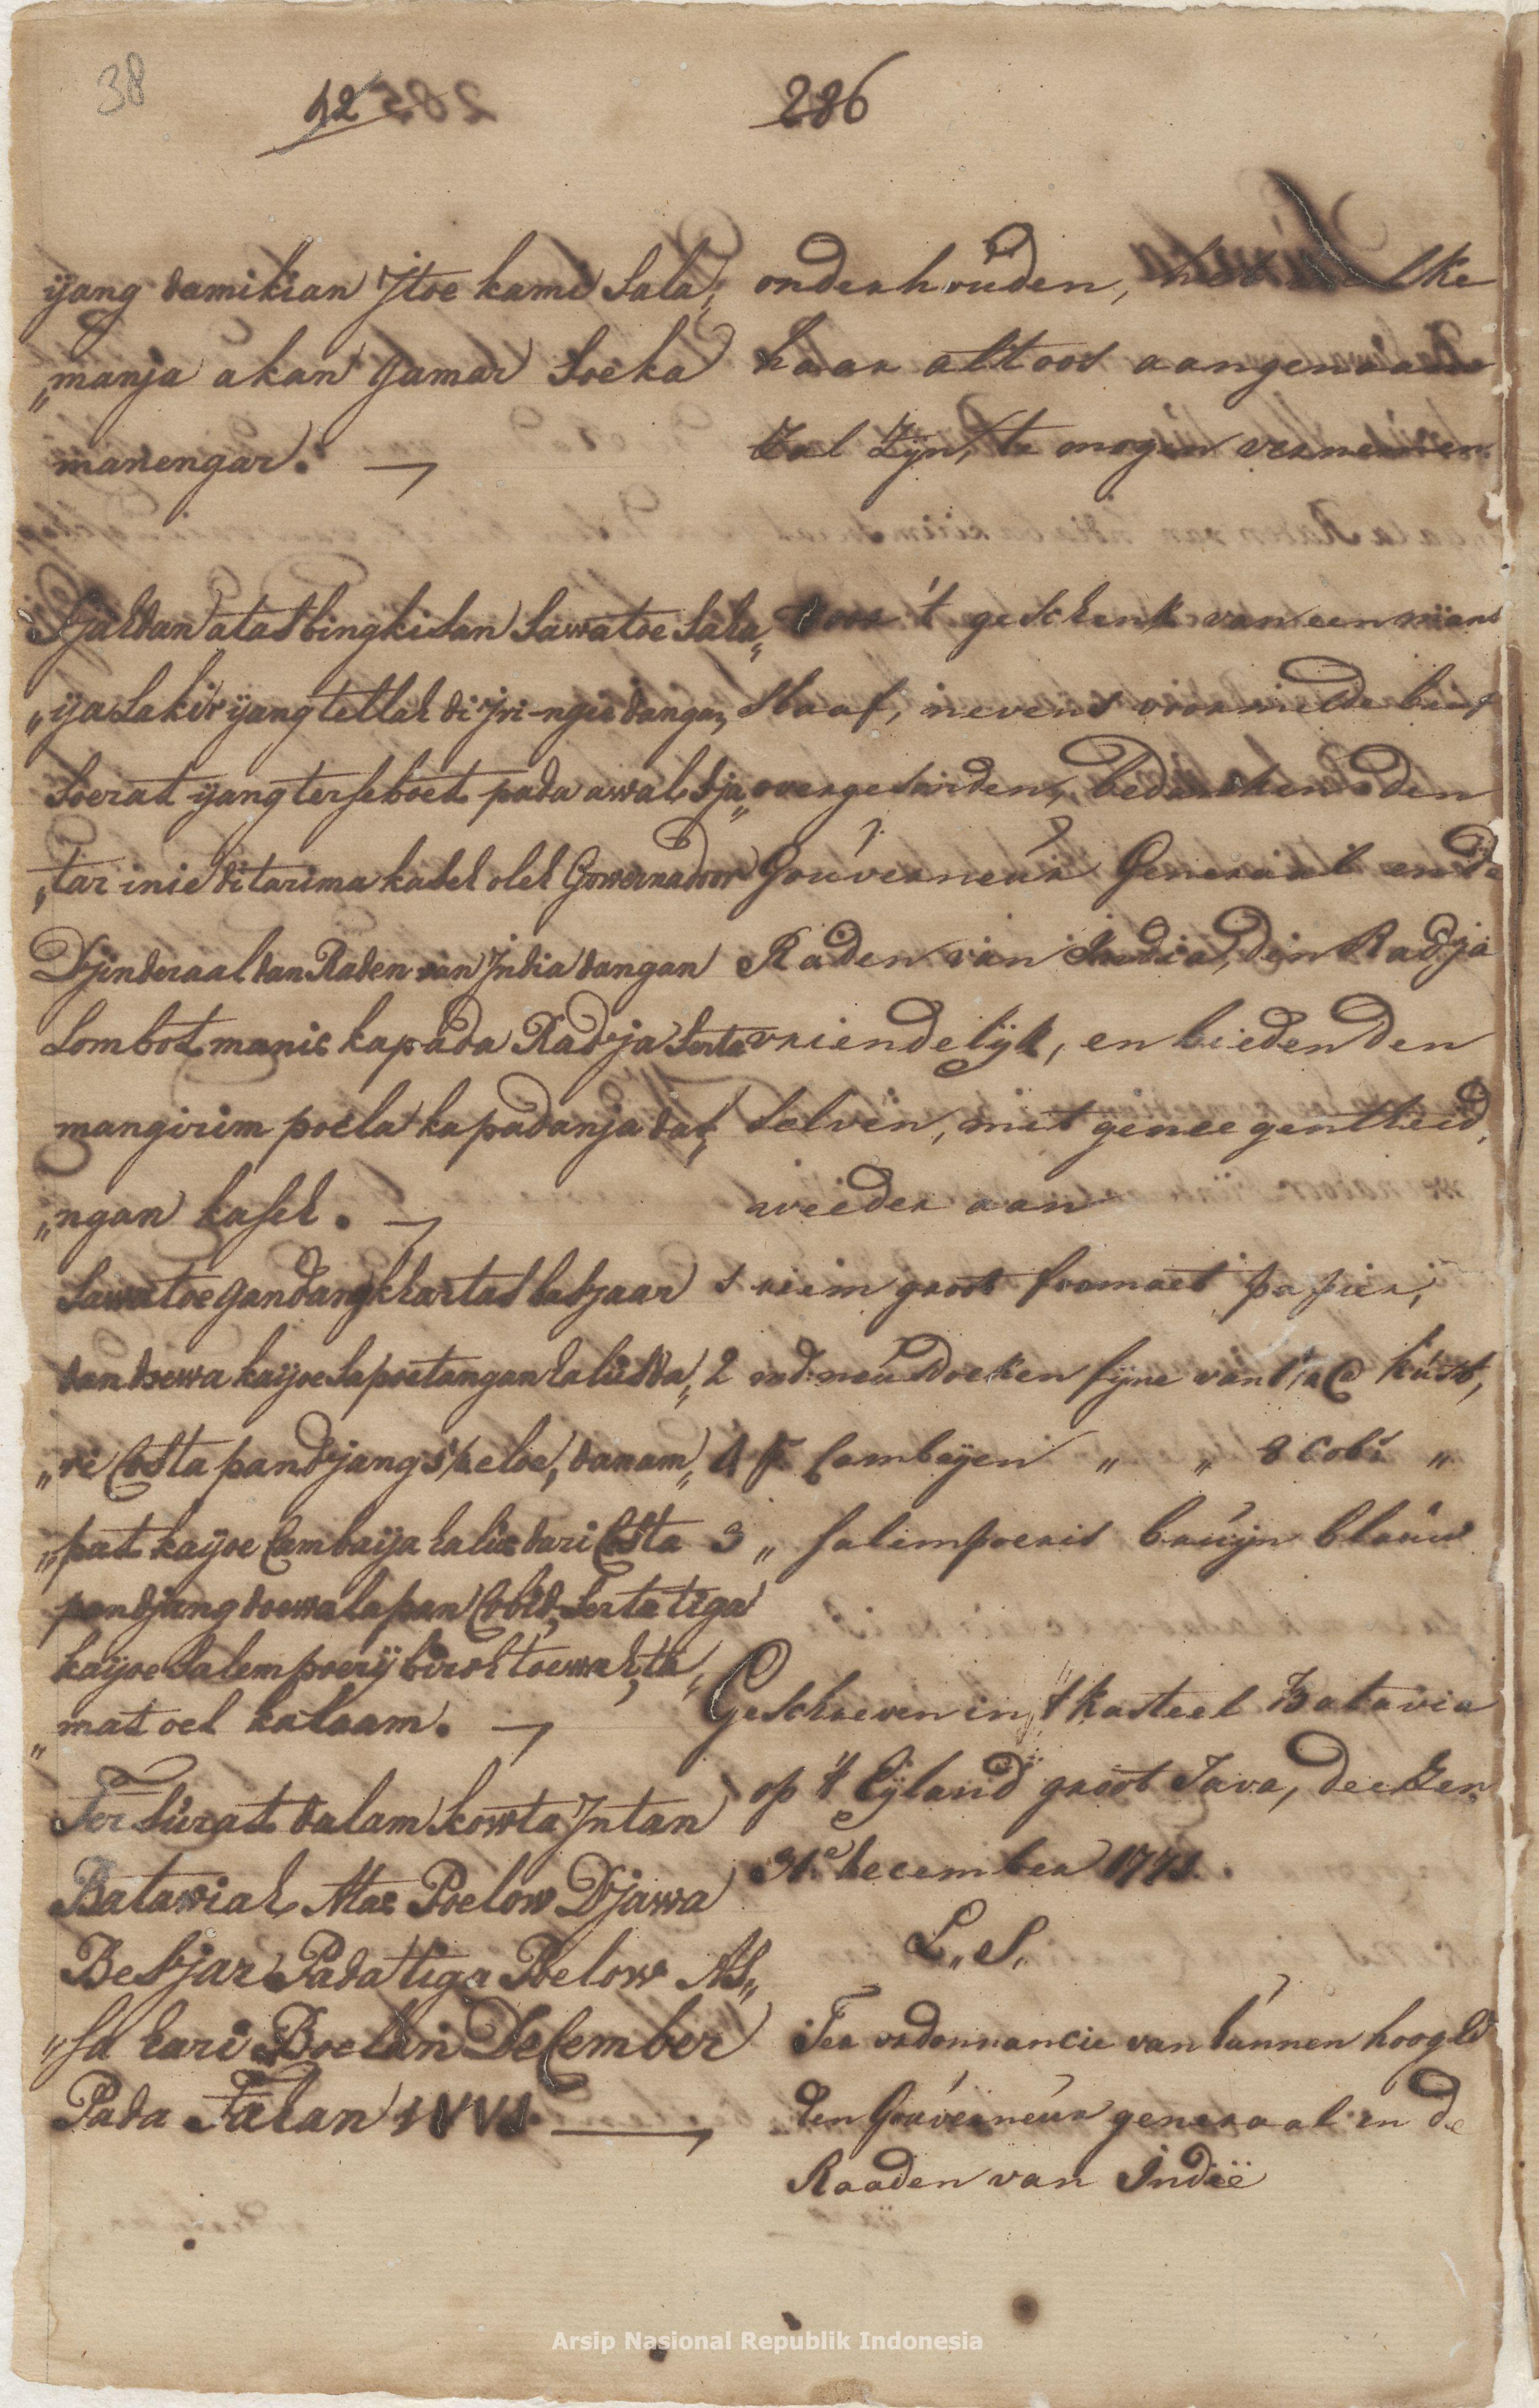 38
42
286
ÿang damikian Jtoe kami Sala„
„manja akan gamar Soeka
manengar. —
Sjaldan atas bingkisan Sawatoe Saha„
„ija Lakir ÿang tellah di Jri-ngie dangan
Soerat ÿang terseboet pada awal Sja„
„tar inie ditarima kaseh oleh Gowernadoor
Djinderaal dan Raden van India dangan
Lombot manis kapada Radja Serta
mangirim poela kapadanja da„
„ngan kaseh. —
Sawatoe gandang khartas basjaar
dan doewa kaijoe Sapoetangan halus da„
„ri Costa pandjang 5/m eloe, dan am„
„pat kaijoe Cambaija halus dari Costa
pandjang doewalapan Cobid, Serta tiga
kaijoe Salempoerÿ biroe toewah, ta„
„mat oel kalaam. —
Tersurat dalam kowta Intan
Batawiah Atas Poelow Djawa
Besjar Pada tiga Poelow AS„
„Sa hari Boelan December
Pada Tahan 1771. —
onderhouden, het welke
haar altoos aangenaam
Zal Zÿn, te mogen vernemen.
Voor 't geschenk van een mans
Slaaf, nevens voormelde brief
overgesonden, bedanken den
Gouverneur Generaal en de
Raden van India, den Radja
vriendelÿk, en bieden den
Selven, met geneegentheid,
weeder aan
1 riem groot formaet papier,
2 neusdoeken fyne van de kust,
4 p Cambayen „ „ 8 Cobs „
3 „ salempoeris bruÿn blauw
Geschreven in 't kasteel Batavia
op 't Eÿland groot Java, deezen
31e december 1771.
L. S.
Ter ordonnancie van hunnen hoogEd
den Gouverneur generaal en de
Raaden van Indië
Arsip Nasional Republik Indonesia